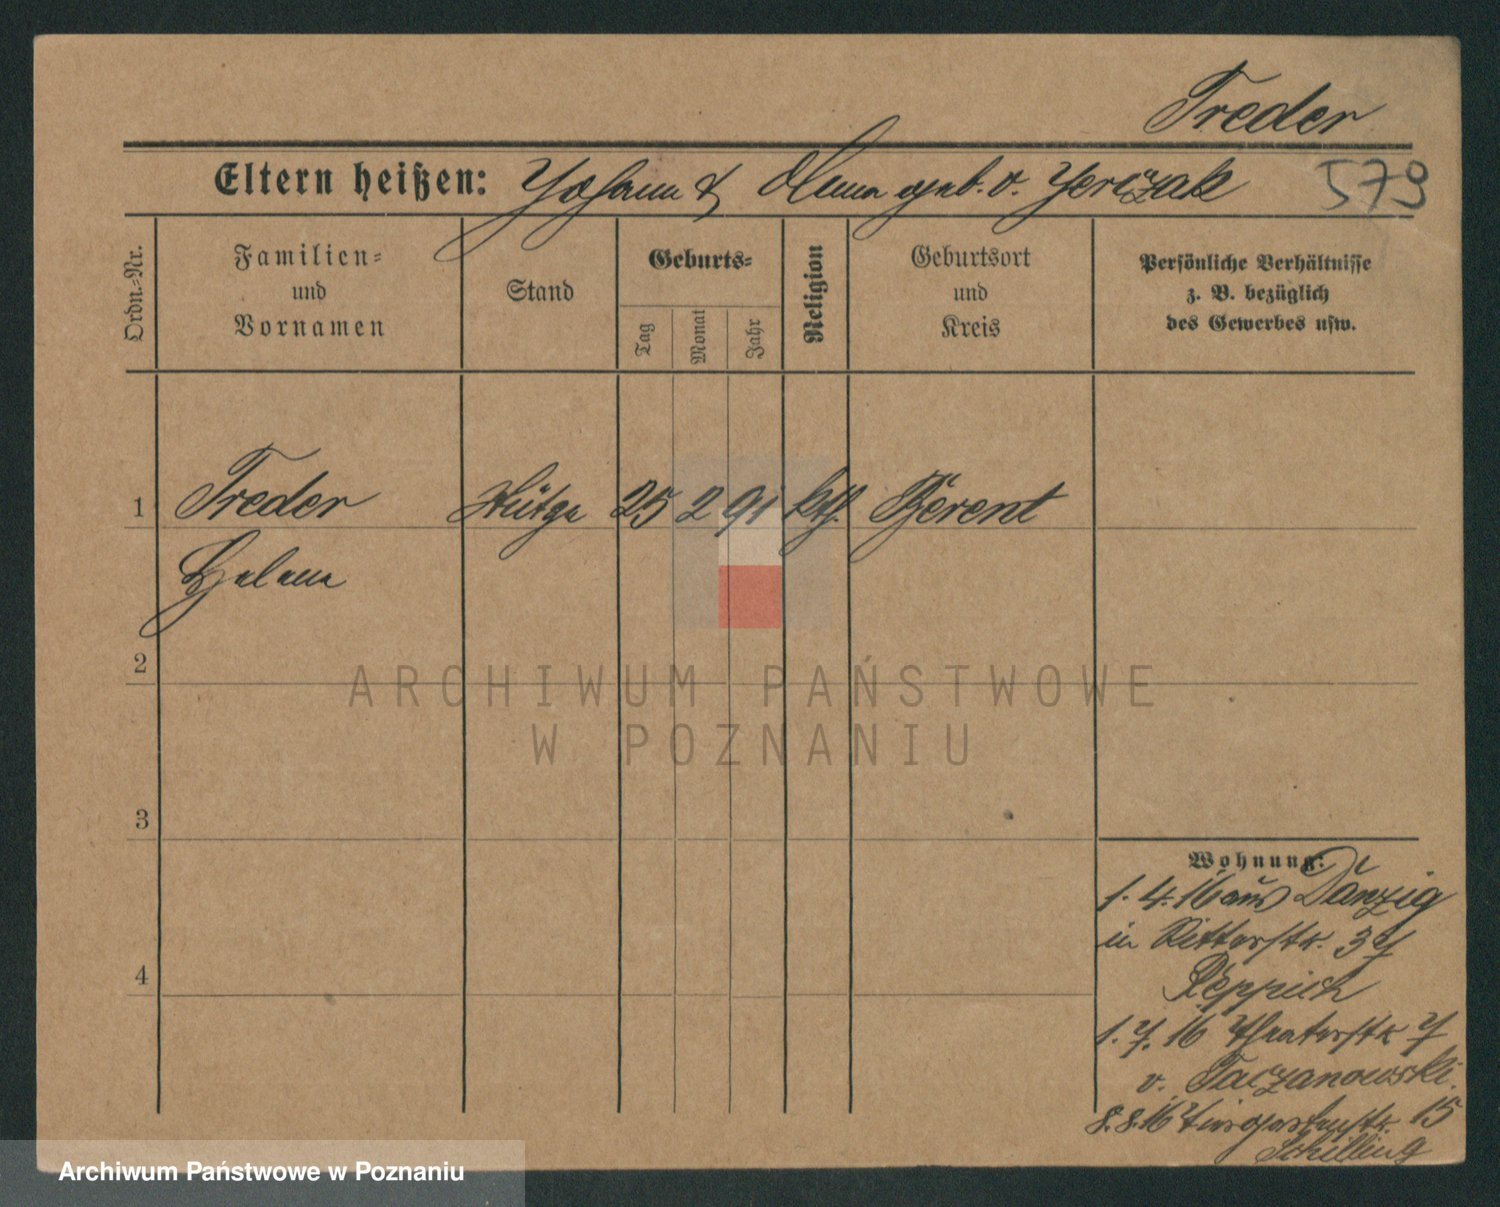 Treder
Eltern heißen: Johann & Anna geb. v. Jerczak
579
Ordn.-Nr.
Familien- und Vornamen
Stand
Geburts-
Tag
Monat
Jahr
Religion
Geburtsort und Kreis
Persönliche Verhältnisse
z. B. bezüglich
des Gewerbes usw.
1 Treder 25 2 91 kth. Berent
Helena
2
3
4
Wohnung:
1. 4. 16 aus Danzig
in Ritterstr. 37
Reppich
1. 7. 16 Theaterstr. 7
v. Taczanowski.
8. 8. 16 15
Schilling
ARCHIWUM PAŃSTWOWE
W POZNANIU
Archiwum Państwowe w Poznaniu